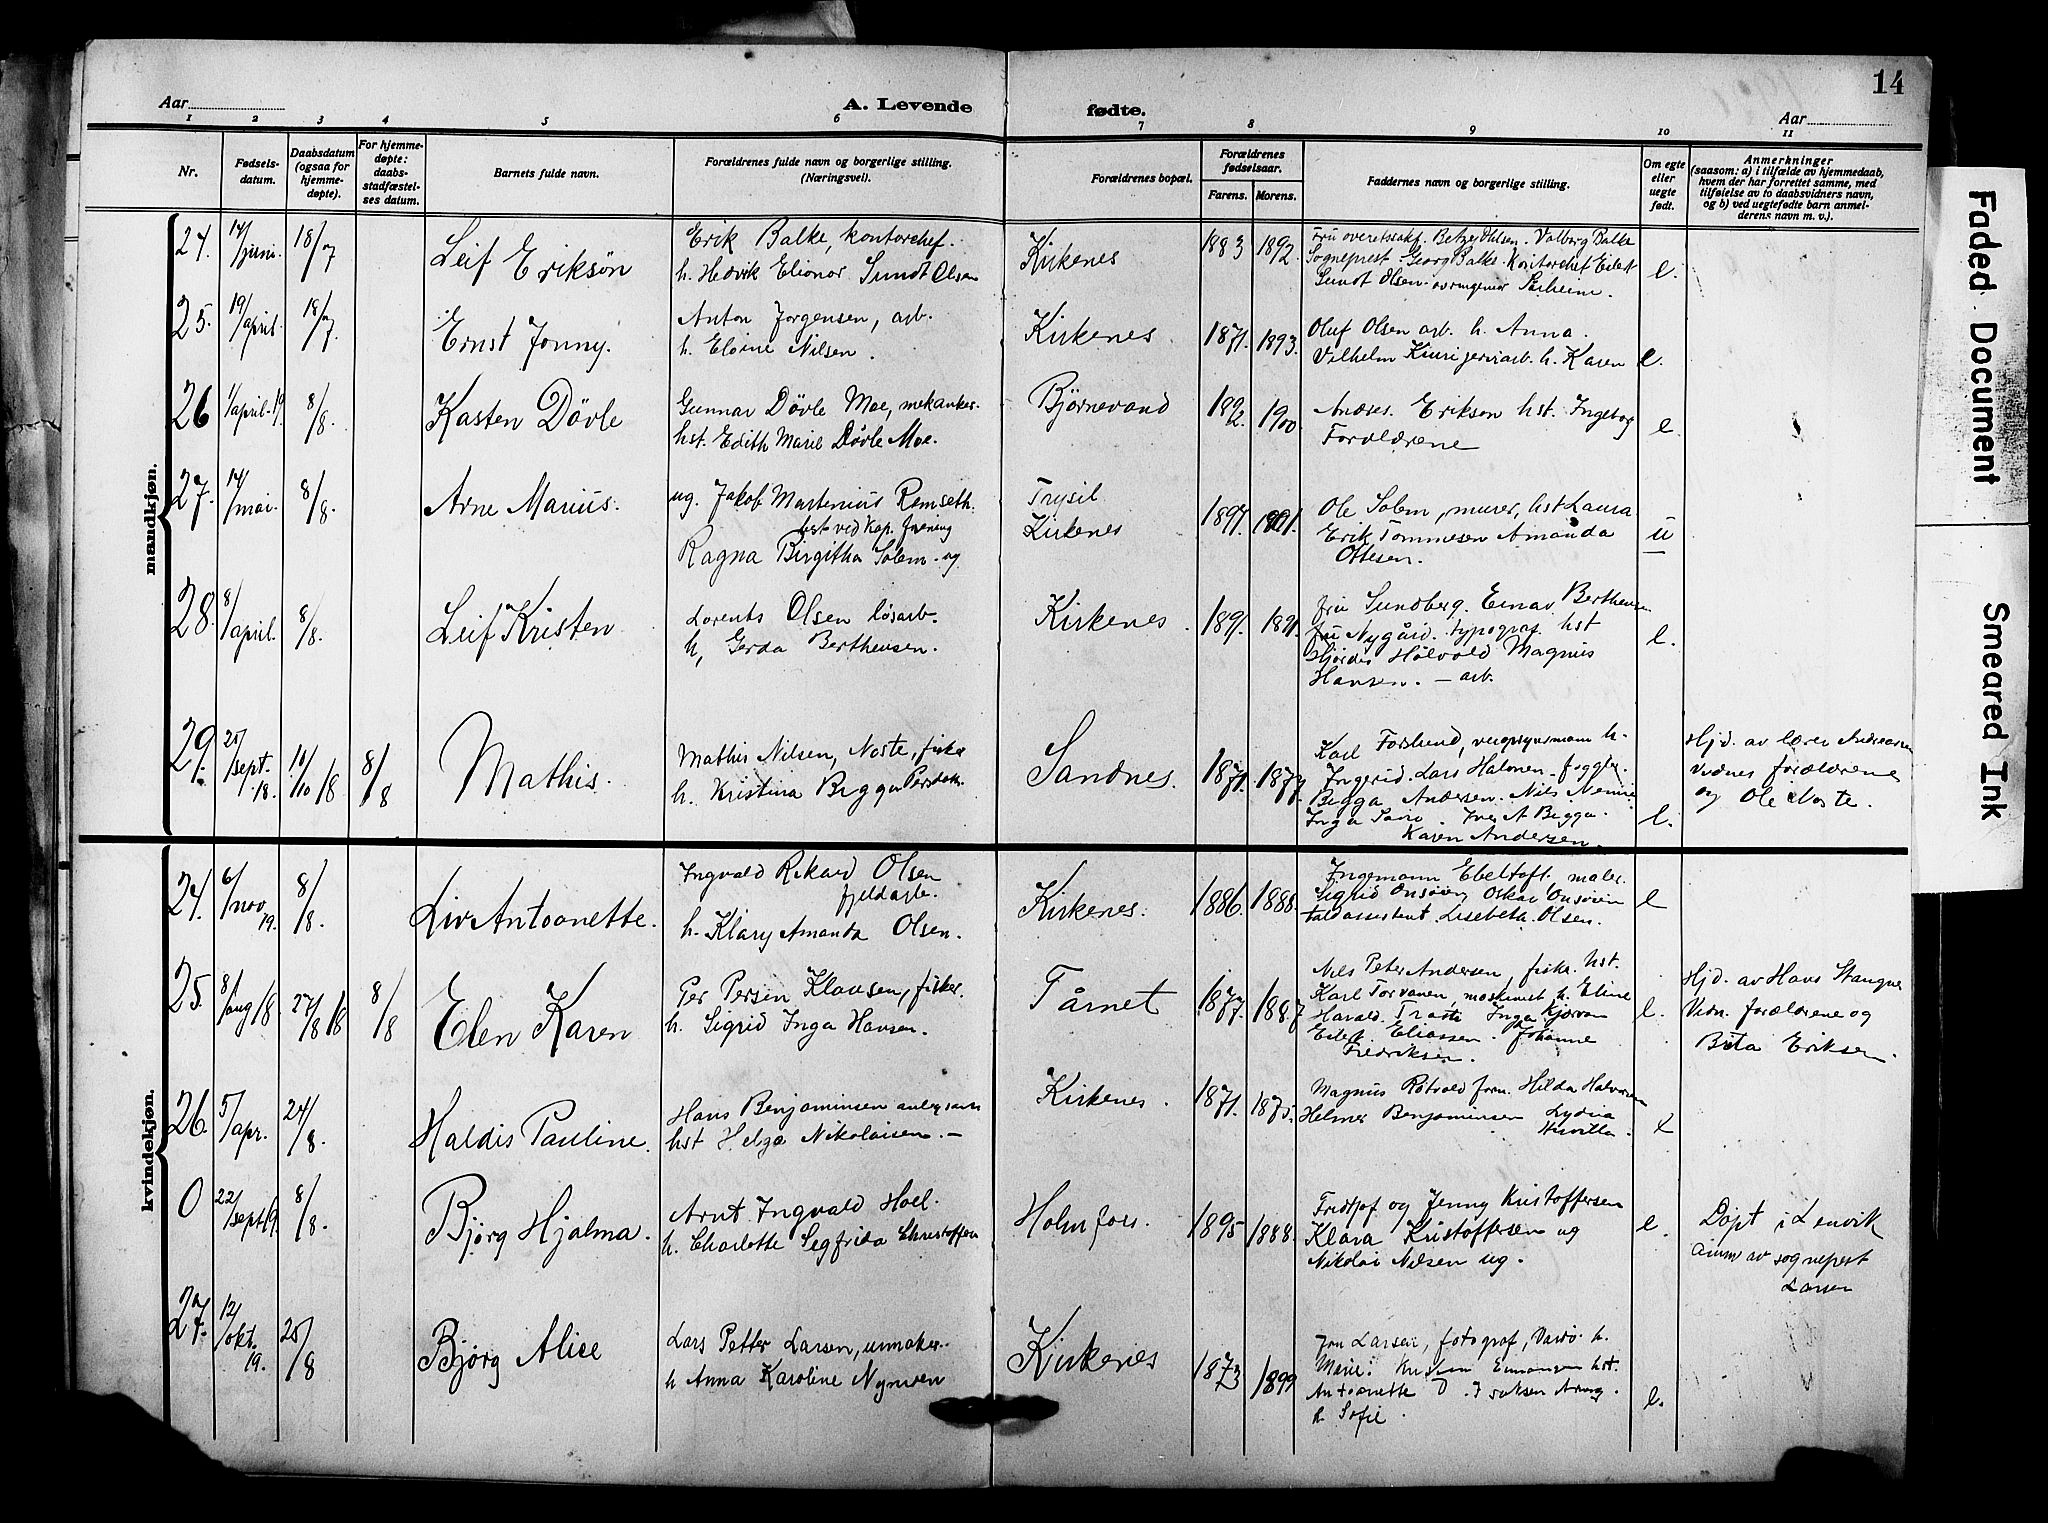 14
Aar
A. Levende
fødte.
Aar
1 2 3 4 5 6 7 8 9 10 11
Nr.
Fødsels-
datum.
Daabsdatum
(ogsaa for
hjemme-
døpte).
For hjemme-
døpte:
daabs-
stadfæstel-
ses datum.
Barnets fulde navn.
Forældrenes fulde navn og borgerlige stilling.
(Næringsvei).
Forældrenes bopæl.
Forældrenes
fødselsaar.
Farens. Morens.
Faddernes navn og borgerlige stilling.
Om egte
eller
uegte
født.
Anmerkninger
(saasom: a) i tilfælde av hjemmedaab,
hvem der har forrettet samme, med
tilføielse av to daabsvidners navn,
og b) ved uegtefødte barn anmel-
derens navn m. v.).
mandkjøn.
24. 14/juni. 18/7
Leif Eriksøn
Erik Balke, kontorchef.
h. Hedvik Elionor Sundt Olsen
Kirkenes
1883 1892.
Valborg Balke
Sogneprest Georg Balke. Kontorchef Eilert
Sundt Olsen
e.
25. 19/april. 18/7.
Ernst Jonny.
Anton Jørgensen, arb.
h. Eloine Nilsen.
Kirkenes.
1871. 1893.
Oluf Olsen arb. h. Anna.
Vilhelm h. Karen
e.
26 1/april-19. 8/8.
Kasten Dövle
Gunnar Dövle Moe, mekaniker.
hst. Edith Marie Dövle Moe.
Björnevand
1892. 1900.
Andres Erikson hst. Ingeborg
Forældrene
e.
27. 14/mai. 8/8.
Arne Marius.
ug. Jakob Martenius Remseth.
best ved kop. forening
Ragna Birgitha Solem. ug
Trysil
Kirkenes
1897. 1891.
Ole Solem, murer, hst Laura
Erik Tommesen Amanda
Ottesen.
u
28. 8/april. 8/8.
Leif Kristen
Lorents Olsen løsarb.
h, Gerda Berthensen.
Kirkenes.
1891. 1891.
fru Sundberg. Einar Berthensen
fru Nygård. typograf. hst
Hjørdis Hålvold Magnus
Hansen. – arb.
e.
29. 25/sept. 18. 10/10/18 8/8
Mathis.
Mathis Nilsen, Noste, fisker
h. Kristina Bigga
Sandnes.
1871. 1877.
Karl h.
Ingerid. Lars Halonen
Bigga Andersen. Nils
Inga Iver A Bigga.
Karen Andersen.
e.
Hjd. av lærer Andreassen
Vidnes forældrene
og Ole Noste.
kvindekjøn.
24. 6/nov 19. 8/8.
Liv Antoonette.
Ingvald Rikard Olsen
fjeldarb.
h. Klary Amanda Olsen.
Kirkenes.
1886. 1888.
Ingemann Ebeltoft. maler.
Sigrid Onsöien, Oskar Onsöien
toldassistent. Lisebeth Olsen.
e
25. 8/aug 18. 27/8 18 8/8
Elen Karen
Per Persen Klausen, fisker.
h. Sigrid Inga Hansen.
Tårnet
1877. 1887
Nils Peter Andersen, fisker. hst.
Karl Torvanen, maskinist h. Eline
Harald. Trasti Inga
Eilert Eliassen. Johanne
Fredriksen.
e.
Hjd. av Hans Stangnes
Vidn. forældrene og
Brita Eriksen.
26. 5/apr. 24/8.
Haldis Pauline.
Hans Benjaminsen
hst Helga Nikolaisen. –
Kirkenes.
1871. 1875.
Magnus Rotvold frm. Hilda Halvorsen
Helmer Benjaminsen Lydia
e
0 22/sept 19. 8/8.
Björg Hjalma.
Arnt Ingvald Hoel.
h. Charlotte Segfrida Christoffersen
Holmfoss.
1895 1888.
Fridtjof og Jenny Kristoffersen
Klara Kristoffersen ug
Nikolai Nilsen ug.
e.
Döpt i Lenvik
anm av sogneprest
Larsen
27. 12/okt. 19. 25/8
Bjørg Alice
Lars Petter Larsen, urmaker.
h Anna Karoline Nymoen
Kirkenes
1873 1899
Jon Larsen, fotograf, Vardö. h.
Marie. hst.
Antoonette
h. Sofie.
e.
Faded Document
Smeared Ink